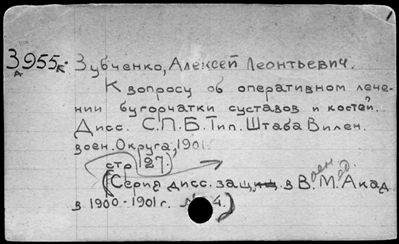 З955к. Зубченко, Алексей Леонтьевич.
А
К вопросу об оперативном лече-
нии бугорчатки суставов и костей.
Дисс. С.П.Б. Тип. Штаба Вилен.
воен. Округа, 1901.
стр 127.)
(Серия дисс. защищ. в Воен. Мед. Акад.
в 1900-1901 г. 4.)